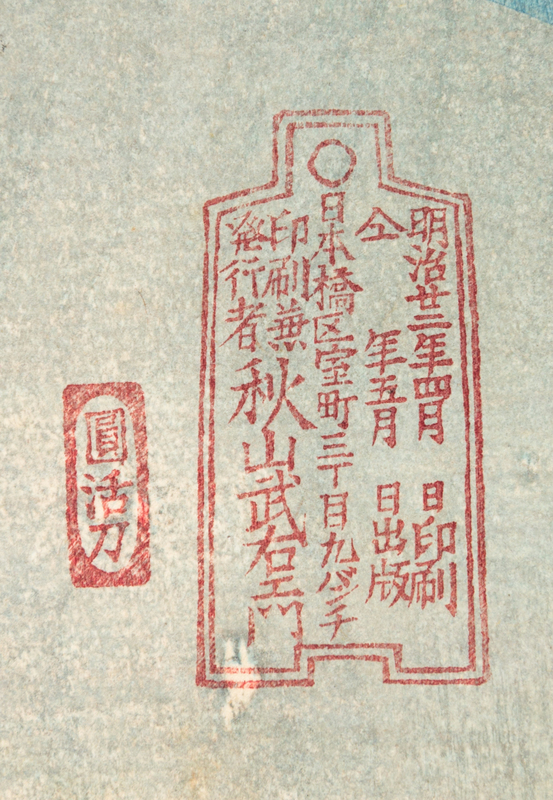 明治廿三年四月 日印刷
仝 年五月 日出版
日本橋区室町三丁目九バンチ
印刷兼
発行者
秋山武右エ門
圓活刀